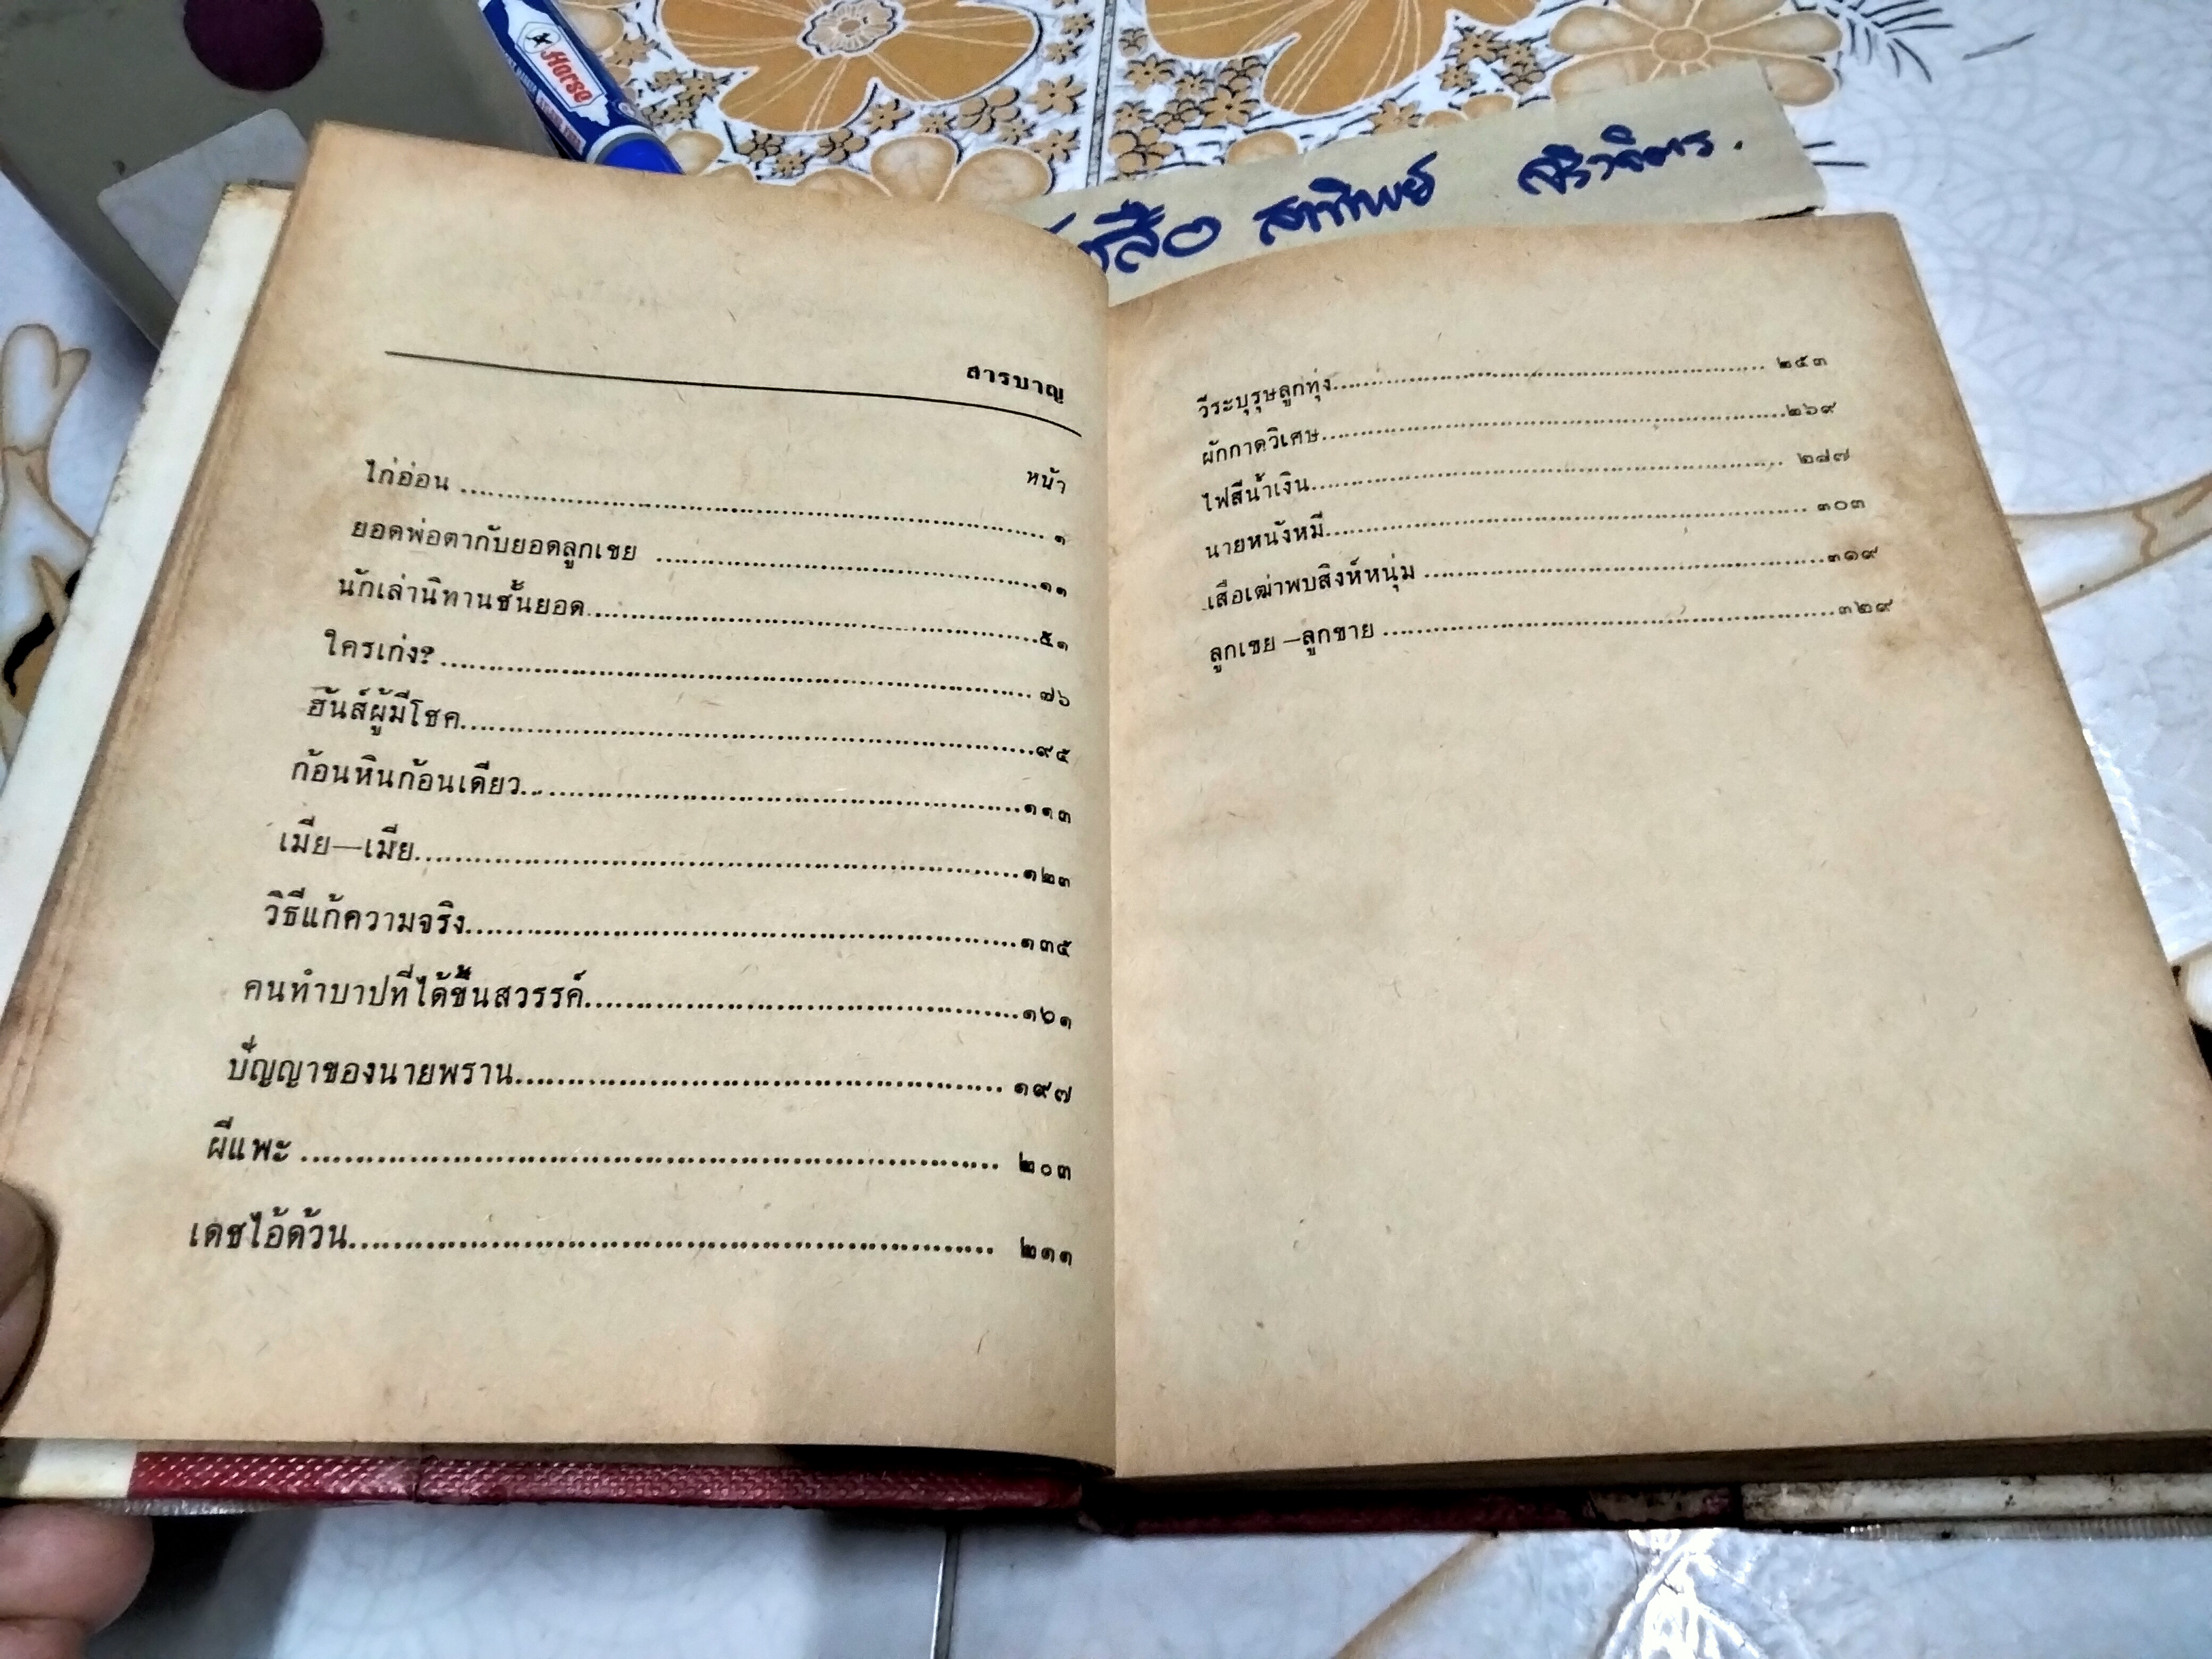 Horse
สาทิพย์
สารบาญ
หน้า
ไก่อ่อน ........ ๑
ยอดพ่อตากับยอดลูกเขย ........ ๑๑
นักเล่านิทานชั้นยอด ........ ๕๑
ใครเก่ง? ........ ๗๖
ฮันส์ผู้มีโชค ........ ๙๕
ก้อนหินก้อนเดียว ........ ๑๑๓
เมีย—เมีย ........ ๑๒๓
วิธีแก้ความจริง ........ ๑๓๕
คนทำบาปที่ได้ขึ้นสวรรค์ ........ ๑๖๑
บัญญาของนายพราน ........ ๑๙๗
ผีแพะ ........ ๒๐๓
เดชไอ้ด้วน ........ ๒๑๑
วีระบุรุษลูกทุ่ง ........ ๒๕๓
ผักกาดวิเศษ ........ ๒๖๙
ไฟสีน้ำเงิน ........ ๒๘๗
นายหนังหมี ........ ๓๐๓
เสือเฒ่าพบสิงห์หนุ่ม ........ ๓๑๙
ลูกเขย —ลูกชาย ........ ๓๒๙